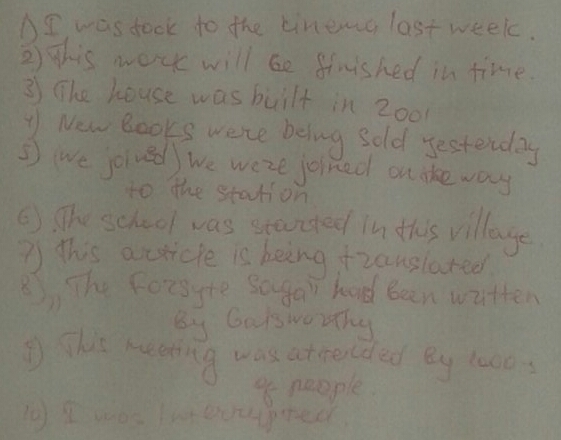 1) I was took to the cinema last week.
2) This work will be finished in time.
3) The house was built in 2001
4) New Books were being sold yesterday
5) (we joined) we were joined on the way
to the station
6) The school was started in this village.
7) This article is being translated.
8) „The Forsyte Saga" had been written
By Galsworthy
9) This meeting was attended By 1000-s
of people
10) I was interrupted.